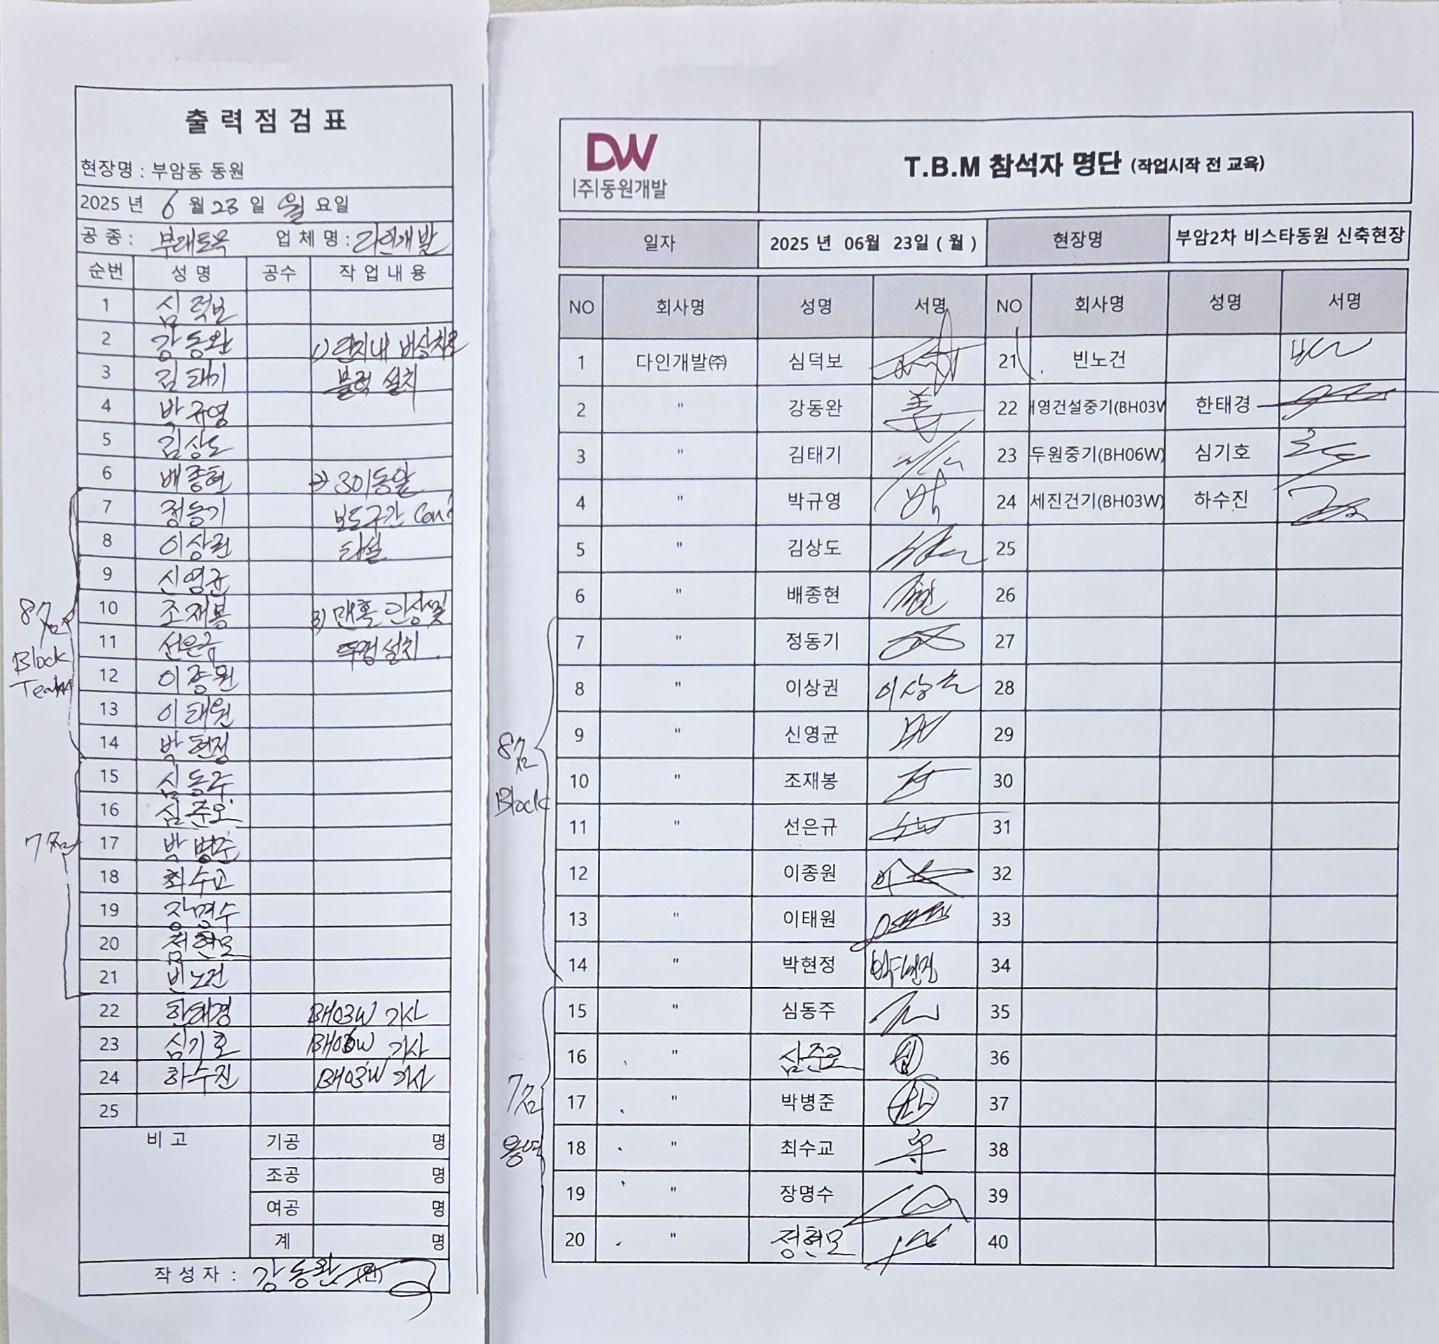 출력점검표
현장명 : 부암동 동원
2025 년 6 월 23 일 월 요일
공 종 : 부대토목 업 체 명 : 다인개발
순번 성 명 공수 작 업 내 용
1 심덕보
2 강동완 1) 단지내
3 김태기 블럭 설치
4 박규영
5 김상도
6 배종현 2) 301동앞
7 정동기 보도구간 Con'
8 이상권 타설
9 신영균
10 조재봉 3) 맨홀 인상및
11 선은규 뚜껑설치
12 이종원
13 이태원
14 박현정
15 심동주
16 심준오
17 박병준
18 최수교
19 장명수
20 정현모
21 빈노건
22 한태경 BH03W 기사
23 심기호 BH06W 기사
24 하수진 BH03W 기사
25
8명
Block
Team
7명
비 고 기공 명
조공 명
여공 명
계 명
작 성 자 : 강동완 (인)
DW
(주)동원개발
T.B.M 참석자 명단 (작업시작 전 교육)
일자 2025 년 06월 23일 ( 월 ) 현장명 부암2차 비스타동원 신축현장
NO 회사명 성명 서명 NO 회사명 성명 서명
1 다인개발㈜ 심덕보 21 빈노건
2 " 강동완 22 영건설중기(BH03W 한태경
3 " 김태기 23 두원중기(BH06W) 심기호
4 " 박규영 24 세진건기(BH03W) 하수진
5 " 김상도 25
6 " 배종현 26
7 " 정동기 27
8 " 이상권 이상권 28
9 " 신영균 29
10 " 조재봉 30
11 " 선은규 31
12 이종원 32
13 " 이태원 33
14 " 박현정 박현정 34
15 " 심동주 35
16 " 심준오 36
17 " 박병준 37
18 " 최수교 38
19 " 장명수 39
20 " 정현모 40
8명
Block
7명
용역